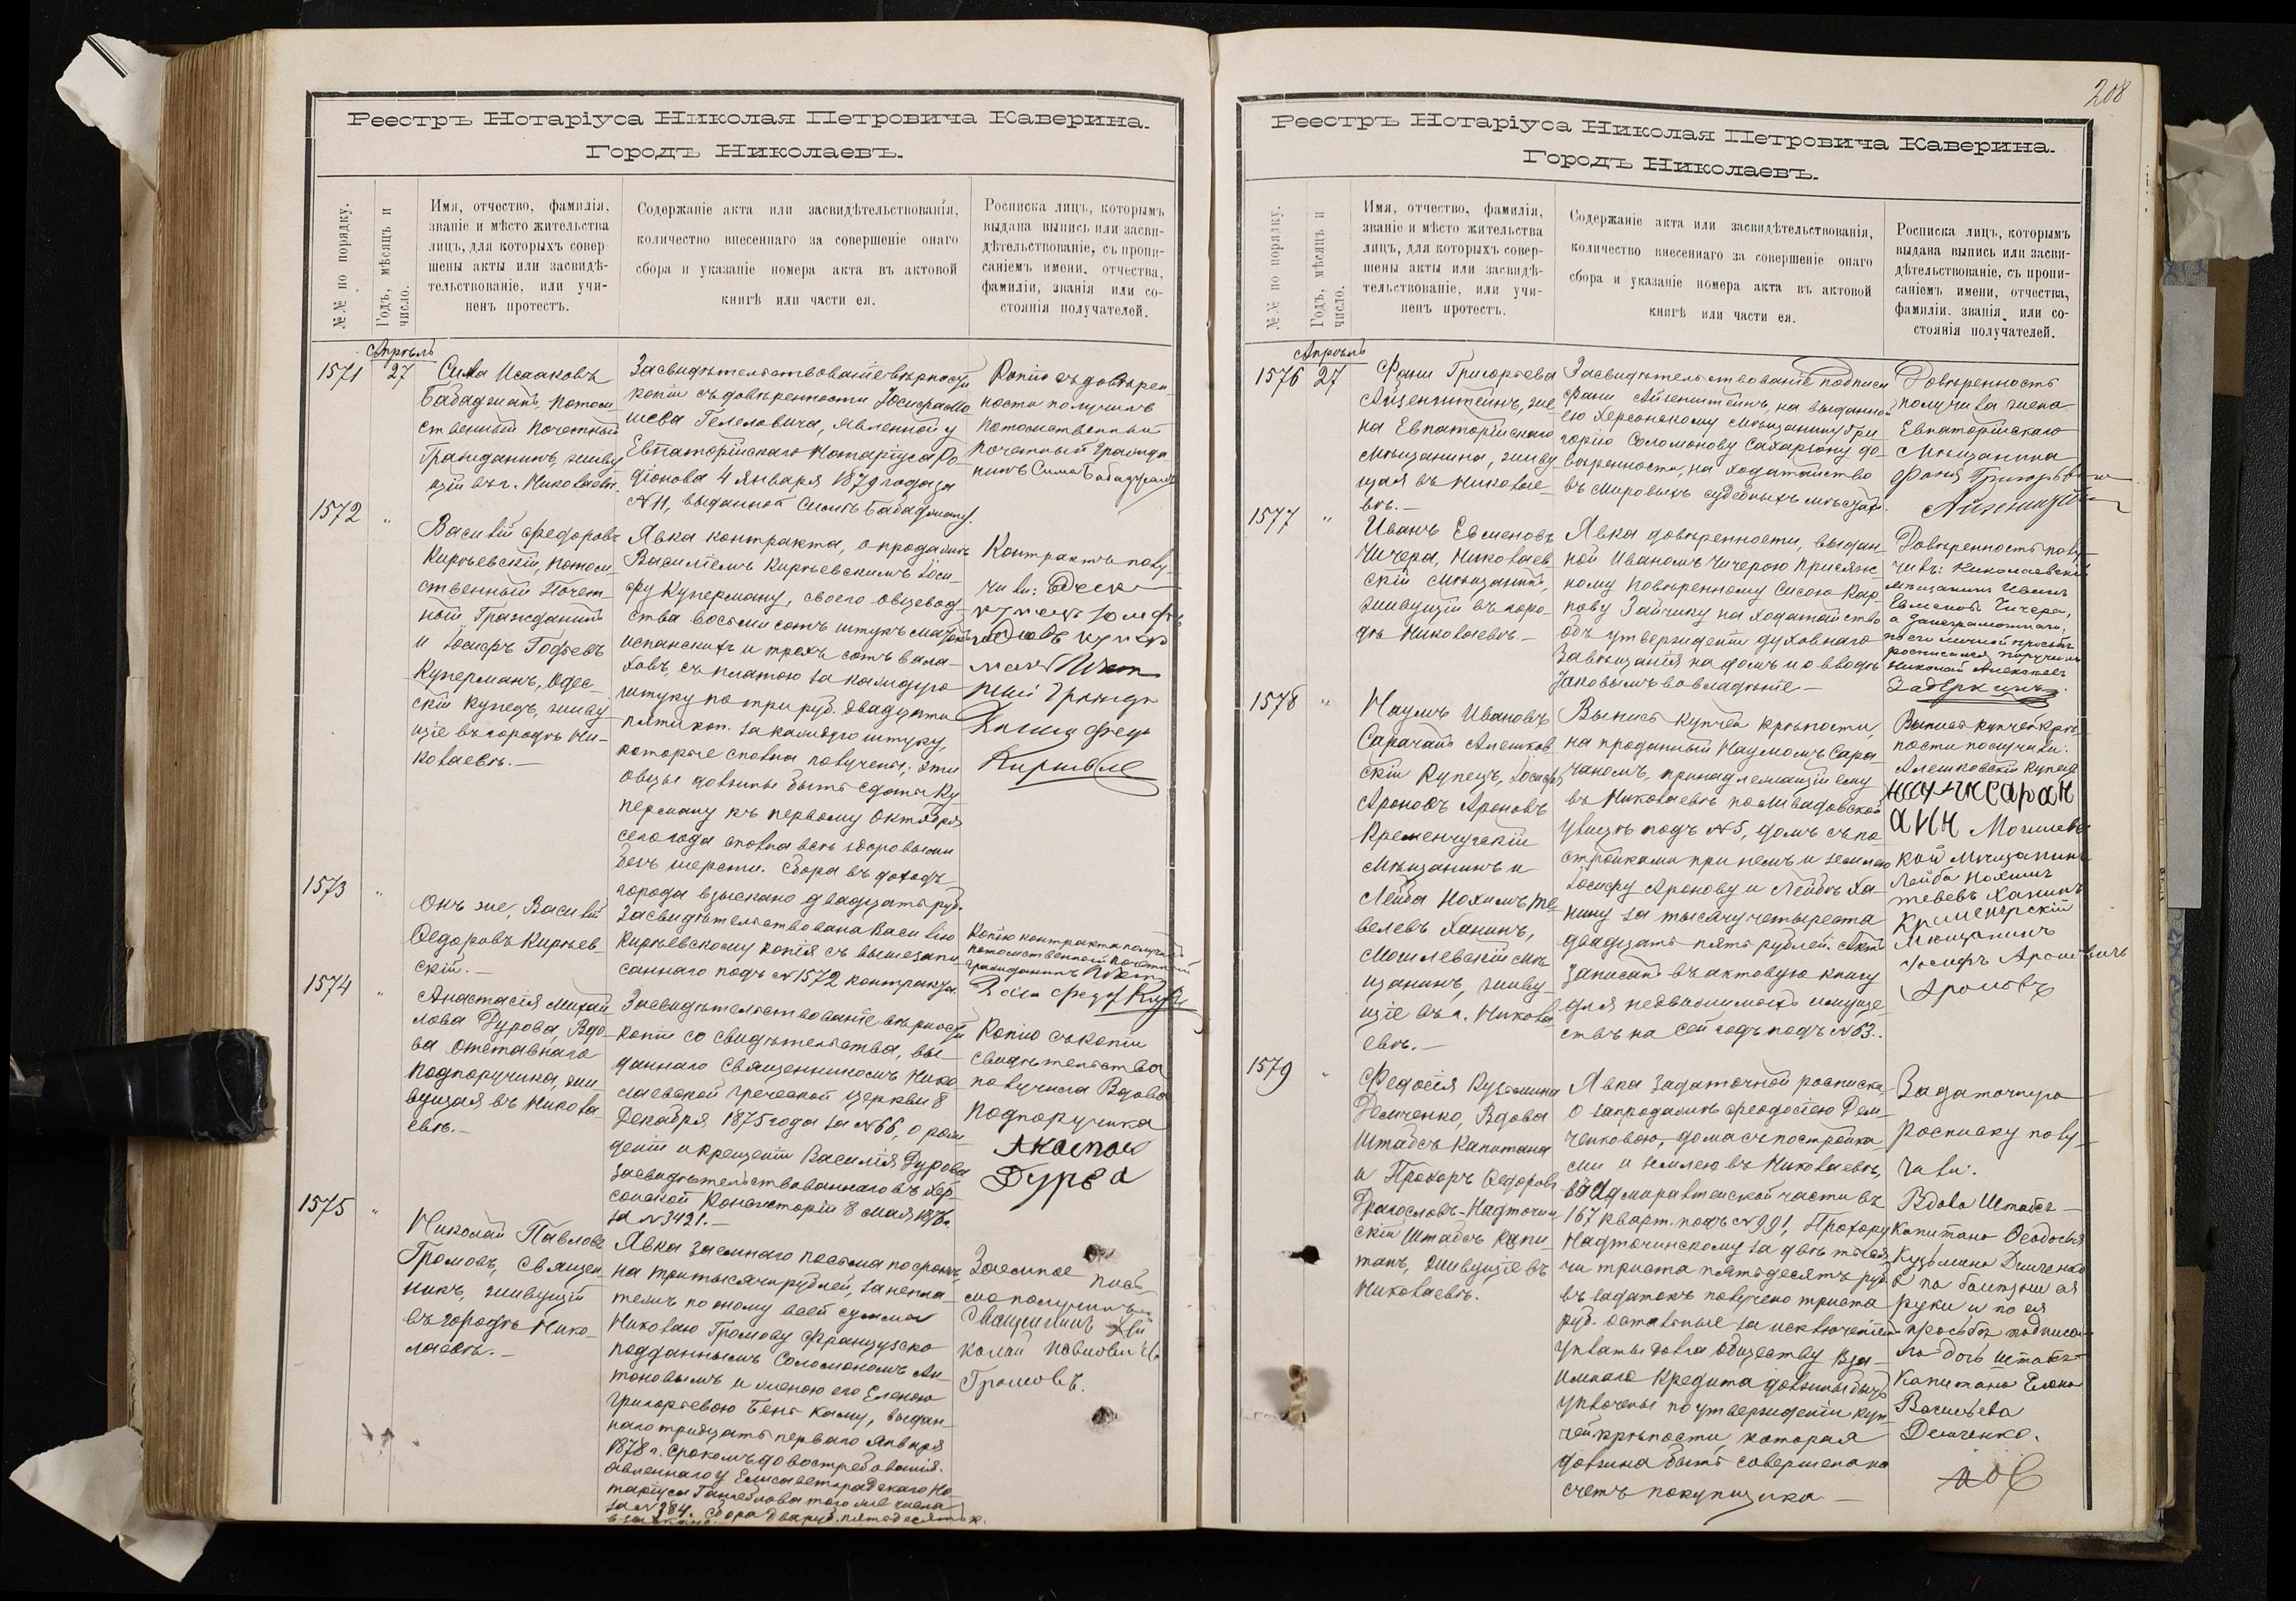 Реестръ Нотаріуса Николая Петровича Каверина.
Городъ Николаевъ.
№№ по порядку.
Годъ, мѣсяцъ и
число.
Имя, отчество, фамилія,
званіе и мѣсто жительства
лицъ, для которыхъ совер-
шены акты или засвидѣ-
тельствованіе, или учи-
ненъ протестъ.
Содержаніе акта или засвидѣтельствованія,
количество внесеннаго за совершеніе онаго
сбора и указаніе номера акта въ актовой
книгѣ или части ея.
Росписка лицъ, которымъ
выдана выпись или засви-
дѣтельствованіе, съ пропи-
саніемъ имени, отчества,
фамиліи, званія или со-
стоянія получателей.
Апрѣль
1571
27
Сима Исааковъ
Бабаджанъ, потом-
ственный Почетный
Гражданинъ, живу
щій въ г. Николаевѣ.
Засвидѣтельствованіе вѣрности
копіи съ довѣренности Іосифа Мо
шева Гелеловича, явленной у
Евпаторійскаго Нотаріуса Ро
діонова 4 Января 1879 года за
№ 11, выданной Симѣ Бабаджану.
Копію съ довѣрен
ности получилъ
потомственный
почетный гражда
нинъ Сима Бабаджанъ
1572
"
Василій Федоровъ
Кирьевскій, потом-
ственный Почет-
ный Гражданинъ
и Іосифъ Гофьевъ
Куперманъ, Одес-
скій купецъ, живу
щіе въ городѣ Ни-
колаевѣ.—
Явка контракта, о продажѣ
Василіемъ Кирьевскимъ Іоси-
фу Куперману, своего овцевод
ства восьми сотъ штукъ матокъ
испанскихъ и трехъ сотъ вала-
ховъ, съ платою за каждую
штуку по три руб. двадцати
пяти коп. за каждую штуку,
которые сполна получены; эти
овцы должны быть сданы Ку
перману къ первому Октября
сего года сполна всѣ здоровыми
безъ шерсти. Сбора въ доходъ
города взыскано двадцать руб.
Контрактъ полу
чили: Одеск
купецъ Іосифъ
1573
"
Онъ же, Василій
Федоровъ Кирьев-
скій.—
Засвидѣтельствована Василію
Кирьевскому копія съ вышезапи
саннаго подъ № 1572 контракта.
Копію контракта получилъ
потомственный почетный
гражданинъ
1574
"
Анастасія Михай
лова Дурова, Вдо-
ва отставнаго
подпоручика, жи
вущая въ Никола
евѣ.—
Засвидѣтельствованіе вѣрности
копіи со свидѣтельства, вы-
даннаго Священникомъ Нико
лаевской Греческой церкви 8
Декабря 1875 года за № 66, о рож
деніи и крещеніи Василія Дурова
засвидѣтельствованнаго въ Хер-
сонской Консисторіи 8 мая 1876 г.
за № 3421.—
Копію съ копіи
свидѣтельства
получила Вдова
подпоручика
Дурова
1575
"
Николай Павловъ
Громовъ, Священ-
никъ, живущій
въ городѣ Нико-
лаевѣ.—
Явка заемнаго письма по сроку,
на три тысячи рублей, за непла-
тежъ по оному всей суммы
Николаю Громову Французско
подданнымъ Соломономъ Ан
тоновымъ и женою его Еленою
Григорьевою Бенъ Каму, выдан-
наго тридцать перваго Января
1878 г. срокомъ до востребованія.
явленнаго у Елисаветградскаго Но
таріуса того же числа
за № 384. Сбора два руб. пятьдесятъ к.
Заемное пись
мо получилъ
Священникъ Ни
колай Павловичъ
Громовъ.
208
Реестръ Нотаріуса Николая Петровича Каверина.
Городъ Николаевъ.
№№ по порядку.
Годъ, мѣсяцъ и
число.
Имя, отчество, фамилія,
званіе и мѣсто жительства
лицъ, для которыхъ совер-
шены акты или засвидѣ-
тельствованіе, или учи-
ненъ протестъ.
Содержаніе акта или засвидѣтельствованія,
количество внесеннаго за совершеніе онаго
сбора и указаніе номера акта въ актовой
книгѣ или части ея.
Росписка лицъ, которымъ
выдана выпись или засви-
дѣтельствованіе, съ пропи-
саніемъ имени, отчества,
фамиліи. званія или со-
стоянія получателей.
Апрѣль
1576
27
Фани Григорьева
Айзенштейнъ, же
на Евпаторійскаго
Мѣщанина, живу
щая въ Николае-
вѣ.—
Засвидѣтельствованіе подписи
Фани Айзенштейнъ, на выданной
ею Херсонскому мѣщанину Гри
горію Соломонову Сахаріону до-
вѣренности, на ходатайство
въ мировыхъ судебныхъ мѣстахъ.
Довѣренность
получила жена
Евпаторійскаго
Мѣщанина
Фаня Григорьева
1577
"
Иванъ Евменовъ
Чичера, Николаев
скій мѣщанинъ,
живущій въ горо-
дѣ Николаевѣ.—
Явка довѣренности, выдан-
ной Иваномъ Чичерою Присяж-
ному Повѣренному Сисою Кар-
пову Зайчику на ходатайство
объ утвержденіи духовнаго
завѣщанія на домъ и о вводѣ
таковымъ во владѣніе—
Довѣренность полу-
чилъ: Николаевскій
мѣщанинъ Иванъ
Евменовъ Чичера,
а за неграмотнаго,
по его личной просьбѣ
росписался поручикъ
Николай Алексѣевъ
Задеркинъ.
1578
"
Наумъ Ивановъ
Сарачанъ Алешков
скій Купецъ, Іосифъ
Ароновъ Ароновъ
Кременчугскій
Мѣщанинъ и
Лейба Нохимъ Те
велевъ Ханинъ,
Могилевскій мѣ
щанинъ, живу-
щіе въ г. Никола
евѣ.—
Выпись купчей крѣпости,
на проданный Наумомъ Сара
чаномъ, принадлежащій ему
въ Николаевѣ по Слободской
улицѣ подъ № 5, домъ съ по-
стройками при немъ и землею
Іосифу Аронову и Лейбѣ Ха-
нину за тысячу четыреста
двадцать пять рублей. Актъ
записанъ въ актовую книгу
для недвижимыхъ имуще-
ствъ на сей годъ подъ № 63.
Выпись купчей крѣ-
пости получили:
Алешковскій купецъ
Могилевс
кой мѣщанинъ
Лейба Нохимъ
тевевъ Ханинъ
Мѣщанинъ
Іосифъ Ароновичъ
Ароновъ
1579
"
Федосія Кузьмина
Демченко, Вдова
Штабсъ Капитана
и Прохоръ Федоровъ
Драгословъ-Надточин
скій Штабсъ Капи-
танъ, живущіе въ
Николаевѣ.
Явка задаточной росписки,
о запродажѣ Феодосіею Дем-
ченковою, дома съ постройка
ми и землею въ Николаевѣ,
въ Адмиралтейской части въ
167 кварт. подъ № 991, Прохору
Надточинскому за двѣ тыся
чи триста пятьдесятъ руб
въ задатокъ получено триста
руб. остальные за исключеніемъ
уплаты долга Обществу Вза-
имнаго Кредита должны быть
уплочены по утвержденіи куп-
чей крѣпости, которая
должна быть совершена на
счетъ покупщика—
Задаточную
росписку полу-
чили:
Вдова Штабсъ-
Капитана Феодосья
Кузьмина Демченко
а по болѣзни ея
руки и по ея
просьбѣ подписа-
ла дочь штабсъ-
Капитана Елена
Васильева
Демченко.